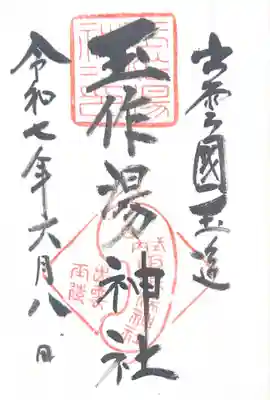 出雲國玉造
玉作湯神社
令和七年六月八日